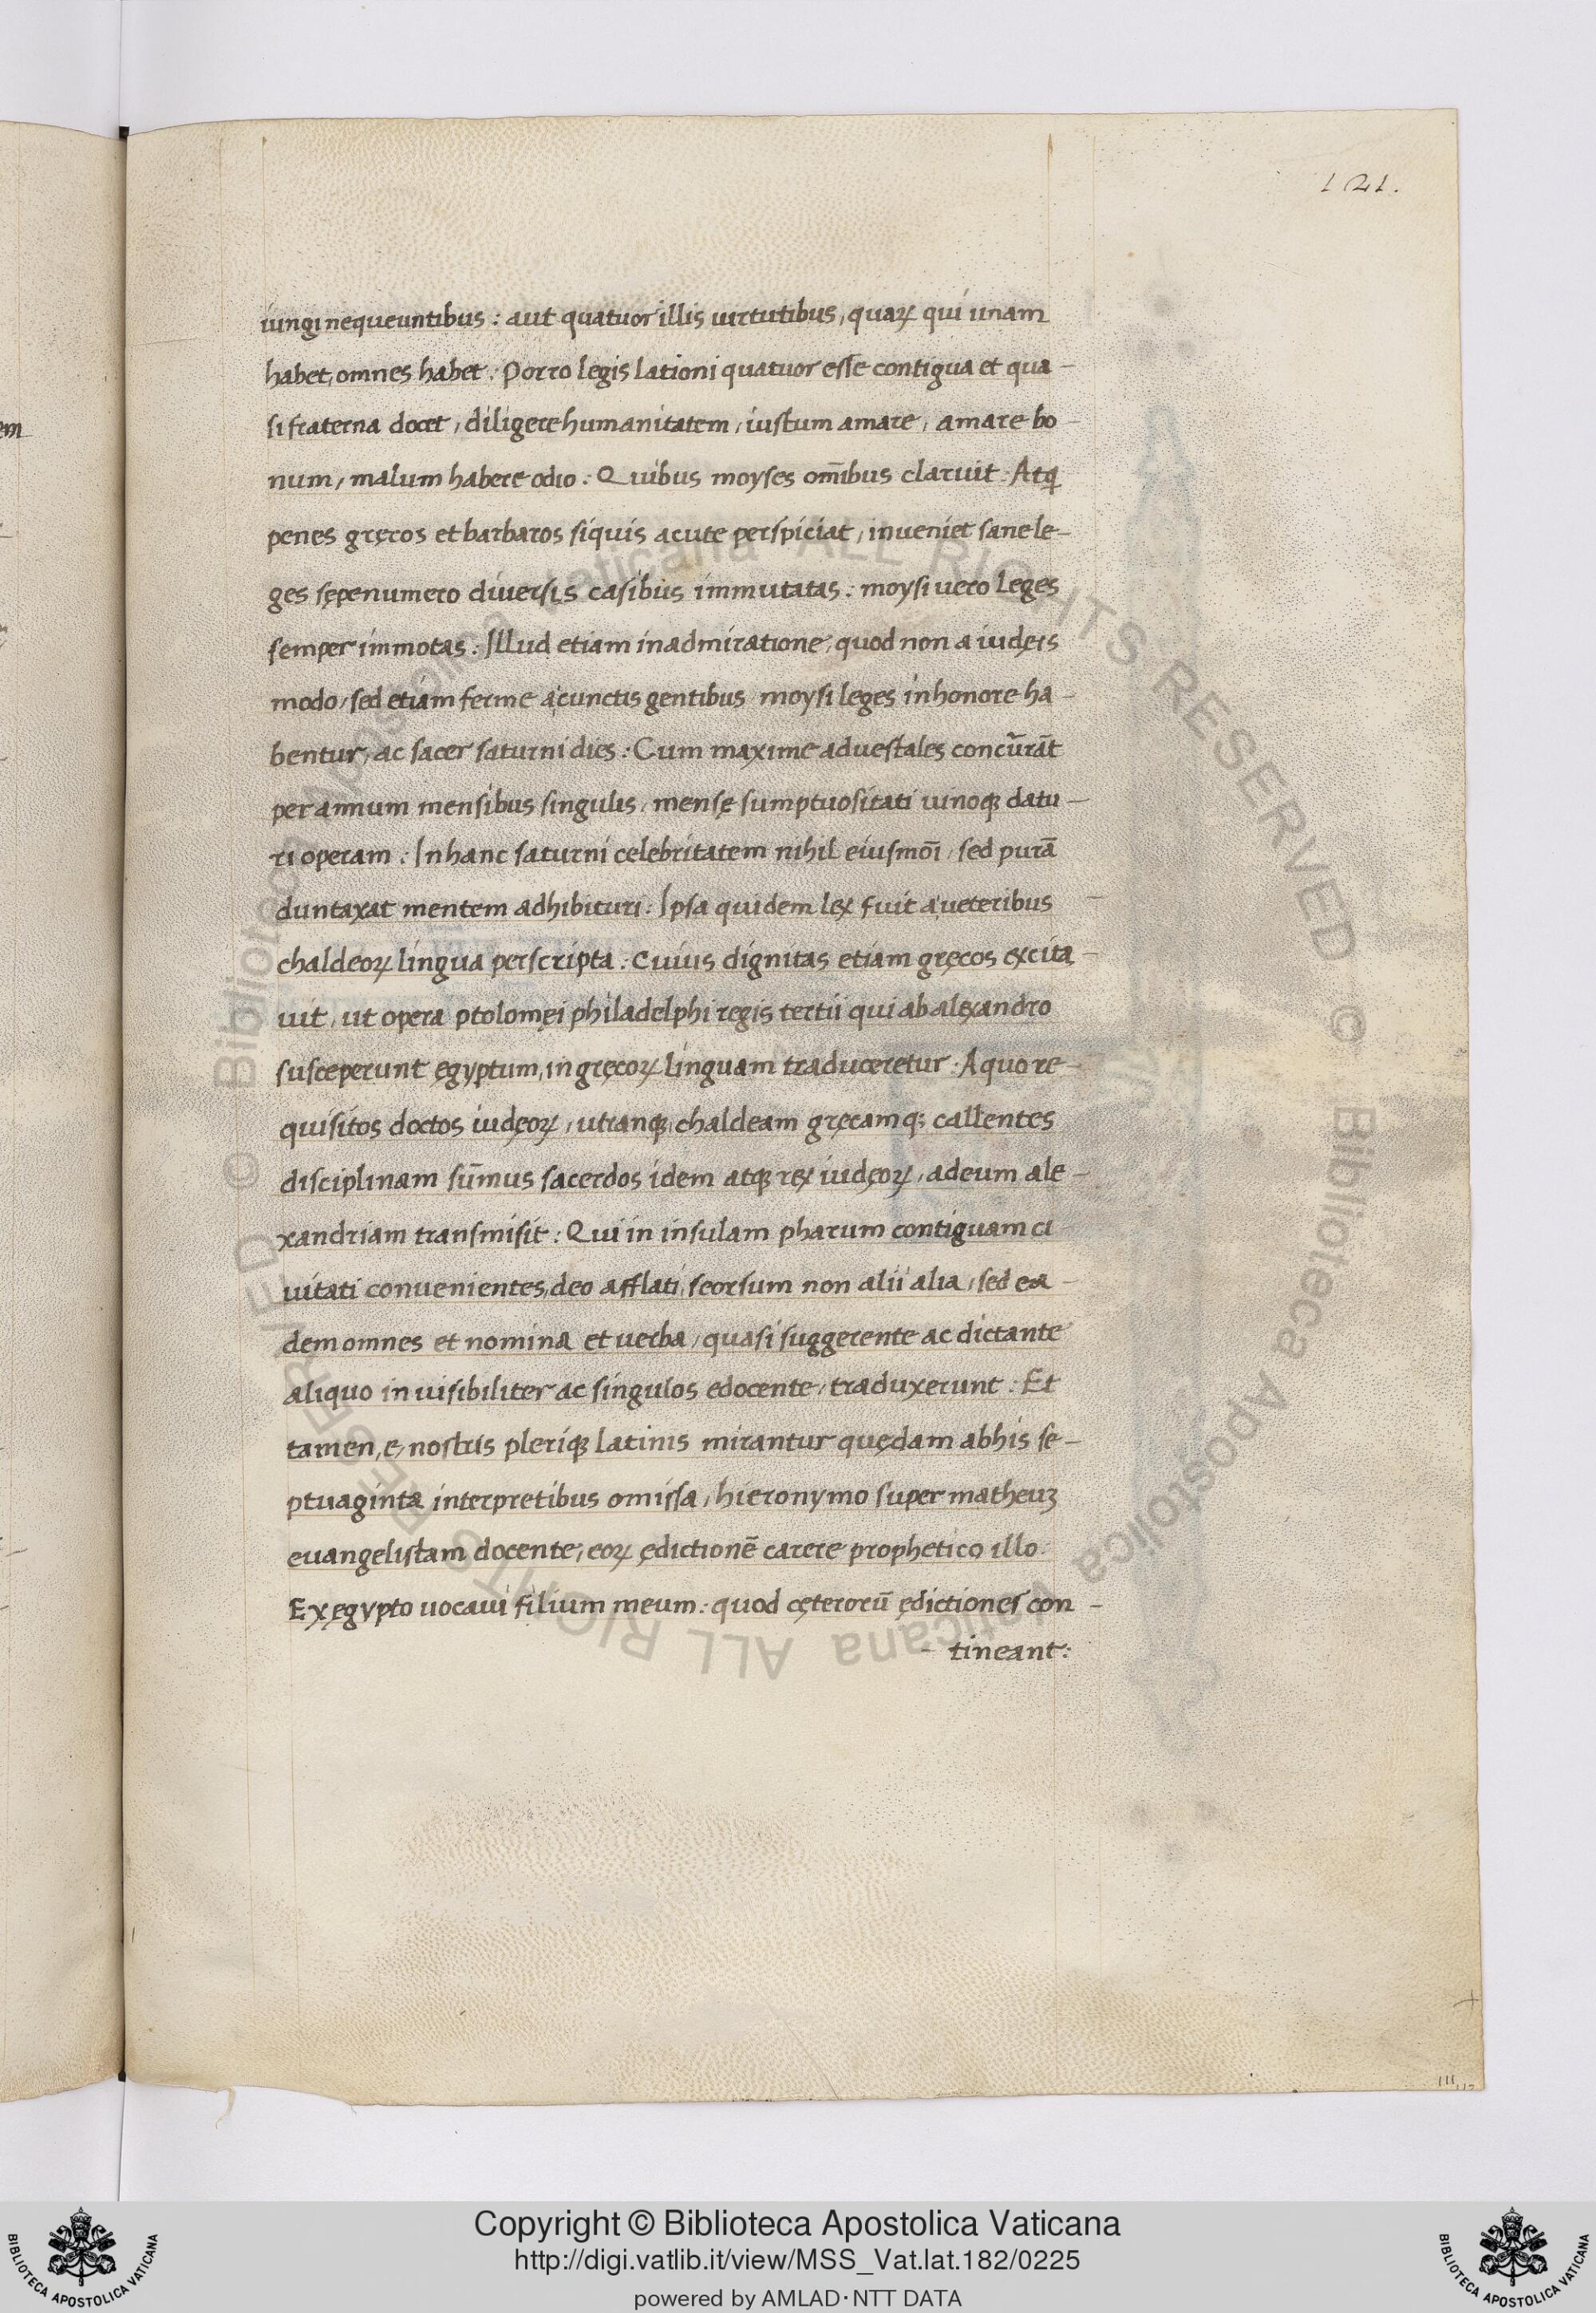 121.
iungi nequeuntibus : aut quatuor illis uirtutibus, quaꝝ qui unam
habet, omnes habet : Porro legis lationi quatuor esse contigua et qua-
si fraterna docet, diligere humanitatem, iustum amare, amare bo-
num, malum habere odio : Quibus moyses om̄ibus claruit : Atq
penes gręcos et barbaros siquis acute perspiciat, inueniet sane le-
ges sępenumero diuersis casibus immutatas : moysi uero leges
semper immotas : Illud etiam in admiratione, quod non a iudęis
modo, sed etiam ferme a cunctis gentibus moysi leges in honore ha-
bentur, ac sacer saturni dies : Cum maxime ad uestales concūrāt
per annum mensibus singulis, mensę sumptuositati uinoqꝫ datu-
ri operam : In hanc saturni celebritatem nihil eiusmōi, sed purā
duntaxat mentem adhibituri : Ipsa quidem lex fuit a ueteribus
chaldeoꝝ lingua perscripta : Cuius dignitas etiam gręcos excita-
uit, ut opera ptolomęi philadelphi regis tertii qui ab alexandro
susceperunt ęgyptum, in gręcoꝝ linguam traduceretur : A quo re-
quisitos doctos iudęoꝝ, utranqꝫ, chaldeam gręcamqꝫ callentes
disciplinam sūmus sacerdos idem atqꝫ rex iudęoꝝ, ad eum ale-
xandriam transmisit : Qui in insulam pharum contiguam ci
uitati conuenientes, deo afflati, seorsum non alii alia, sed ea-
dem omnes et nomina et uerba, quasi suggerente ac dictante
aliquo inuisibiliter ac singulos edocente, traduxerunt : Et
tamen, e, nostris pleriqꝫ latinis mirantur quędam ab his se-
ptuaginta interpretibus omissa, hieronymo super matheuꝫ
euangelistam docente, eoꝝ ędictionē carere prophetico illo :
Ex ęgypto uocaui filium meum : quod cęterorū ędictiones con-
- tineant :
em
© Biblioteca Apostolica Vaticana ALL RIGHTS RESERVED © Biblioteca Apostolica Vaticana ALL RIGHTS RESERVED
Copyright © Biblioteca Apostolica Vaticana
http://digi.vatlib.it/view/MSS_Vat.lat.182/0225
powered by AMLAD·NTT DATA
BIBLIOTECA APOSTOLICA VATICANA
BIBLIOTECA APOSTOLICA VATICANA